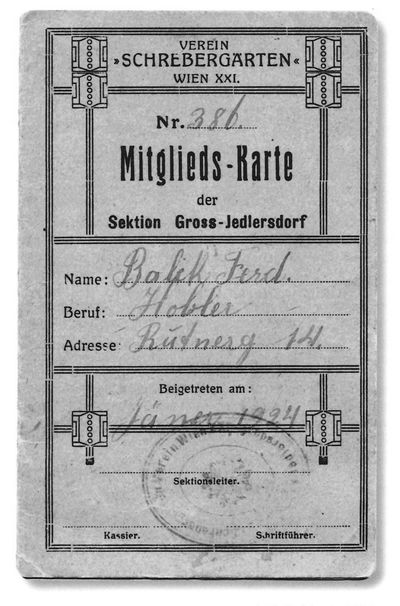 VEREIN
»SCHREBERGÄRTEN«
WIEN XXI.
Nr. 386.
Mitglieds-Karte
der
Sektion Gross-Jedlersdorf
Name: Balik Ferd.
Beruf: Hobler
Adresse: 14.
Beigetreten am:
1924
Sektionsleiter.
Kassier. Schriftführer.